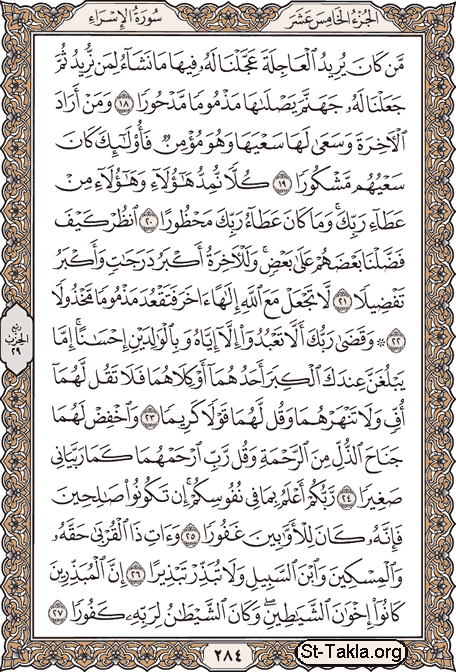 الجزء الخامس عشر
سورة الإسراء
مَّن كَانَ يُرِيدُ ٱلْعَاجِلَةَ عَجَّلْنَا لَهُۥ فِيهَا مَا نَشَآءُ لِمَن نُّرِيدُ ثُمَّ
جَعَلْنَا لَهُۥ جَهَنَّمَ يَصْلَىٰهَا مَذْمُومًا مَّدْحُورًا ١٨ وَمَنْ أَرَادَ
ٱلْءَاخِرَةَ وَسَعَىٰ لَهَا سَعْيَهَا وَهُوَ مُؤْمِنٌ فَأُو۟لَٰٓئِكَ كَانَ
سَعْيُهُم مَّشْكُورًا ١٩ كُلًّا نُّمِدُّ هَٰٓؤُلَآءِ وَهَٰٓؤُلَآءِ مِنْ
عَطَآءِ رَبِّكَ ۚ وَمَا كَانَ عَطَآءُ رَبِّكَ مَحْظُورًا ٢٠ ٱنظُرْ كَيْفَ
فَضَّلْنَا بَعْضَهُمْ عَلَىٰ بَعْضٍ ۚ وَلَلْءَاخِرَةُ أَكْبَرُ دَرَجَٰتٍ وَأَكْبَرُ
تَفْضِيلًا ٢١ لَّا تَجْعَلْ مَعَ ٱللَّهِ إِلَٰهًا ءَاخَرَ فَتَقْعُدَ مَذْمُومًا مَّخْذُولًا
٢٢ ۞ وَقَضَىٰ رَبُّكَ أَلَّا تَعْبُدُوٓا۟ إِلَّآ إِيَّاهُ وَبِٱلْوَٰلِدَيْنِ إِحْسَٰنًا ۚ إِمَّا
يَبْلُغَنَّ عِندَكَ ٱلْكِبَرَ أَحَدُهُمَآ أَوْ كِلَاهُمَا فَلَا تَقُل لَّهُمَآ
أُفٍّ وَلَا تَنْهَرْهُمَا وَقُل لَّهُمَا قَوْلًا كَرِيمًا ٢٣ وَٱخْفِضْ لَهُمَا
جَنَاحَ ٱلذُّلِّ مِنَ ٱلرَّحْمَةِ وَقُل رَّبِّ ٱرْحَمْهُمَا كَمَا رَبَّيَانِى
صَغِيرًا ٢٤ رَّبُّكُمْ أَعْلَمُ بِمَا فِى نُفُوسِكُمْ ۚ إِن تَكُونُوا۟ صَٰلِحِينَ
فَإِنَّهُۥ كَانَ لِلْأَوَّٰبِينَ غَفُورًا ٢٥ وَءَاتِ ذَا ٱلْقُرْبَىٰ حَقَّهُۥ
وَٱلْمِسْكِينَ وَٱبْنَ ٱلسَّبِيلِ وَلَا تُبَذِّرْ تَبْذِيرًا ٢٦ إِنَّ ٱلْمُبَذِّرِينَ
كَانُوٓا۟ إِخْوَٰنَ ٱلشَّيَٰطِينِ ۖ وَكَانَ ٱلشَّيْطَٰنُ لِرَبِّهِۦ كَفُورًا ٢٧
ربع
الحزب
٢٩
٢٨٤
St-Takla.org